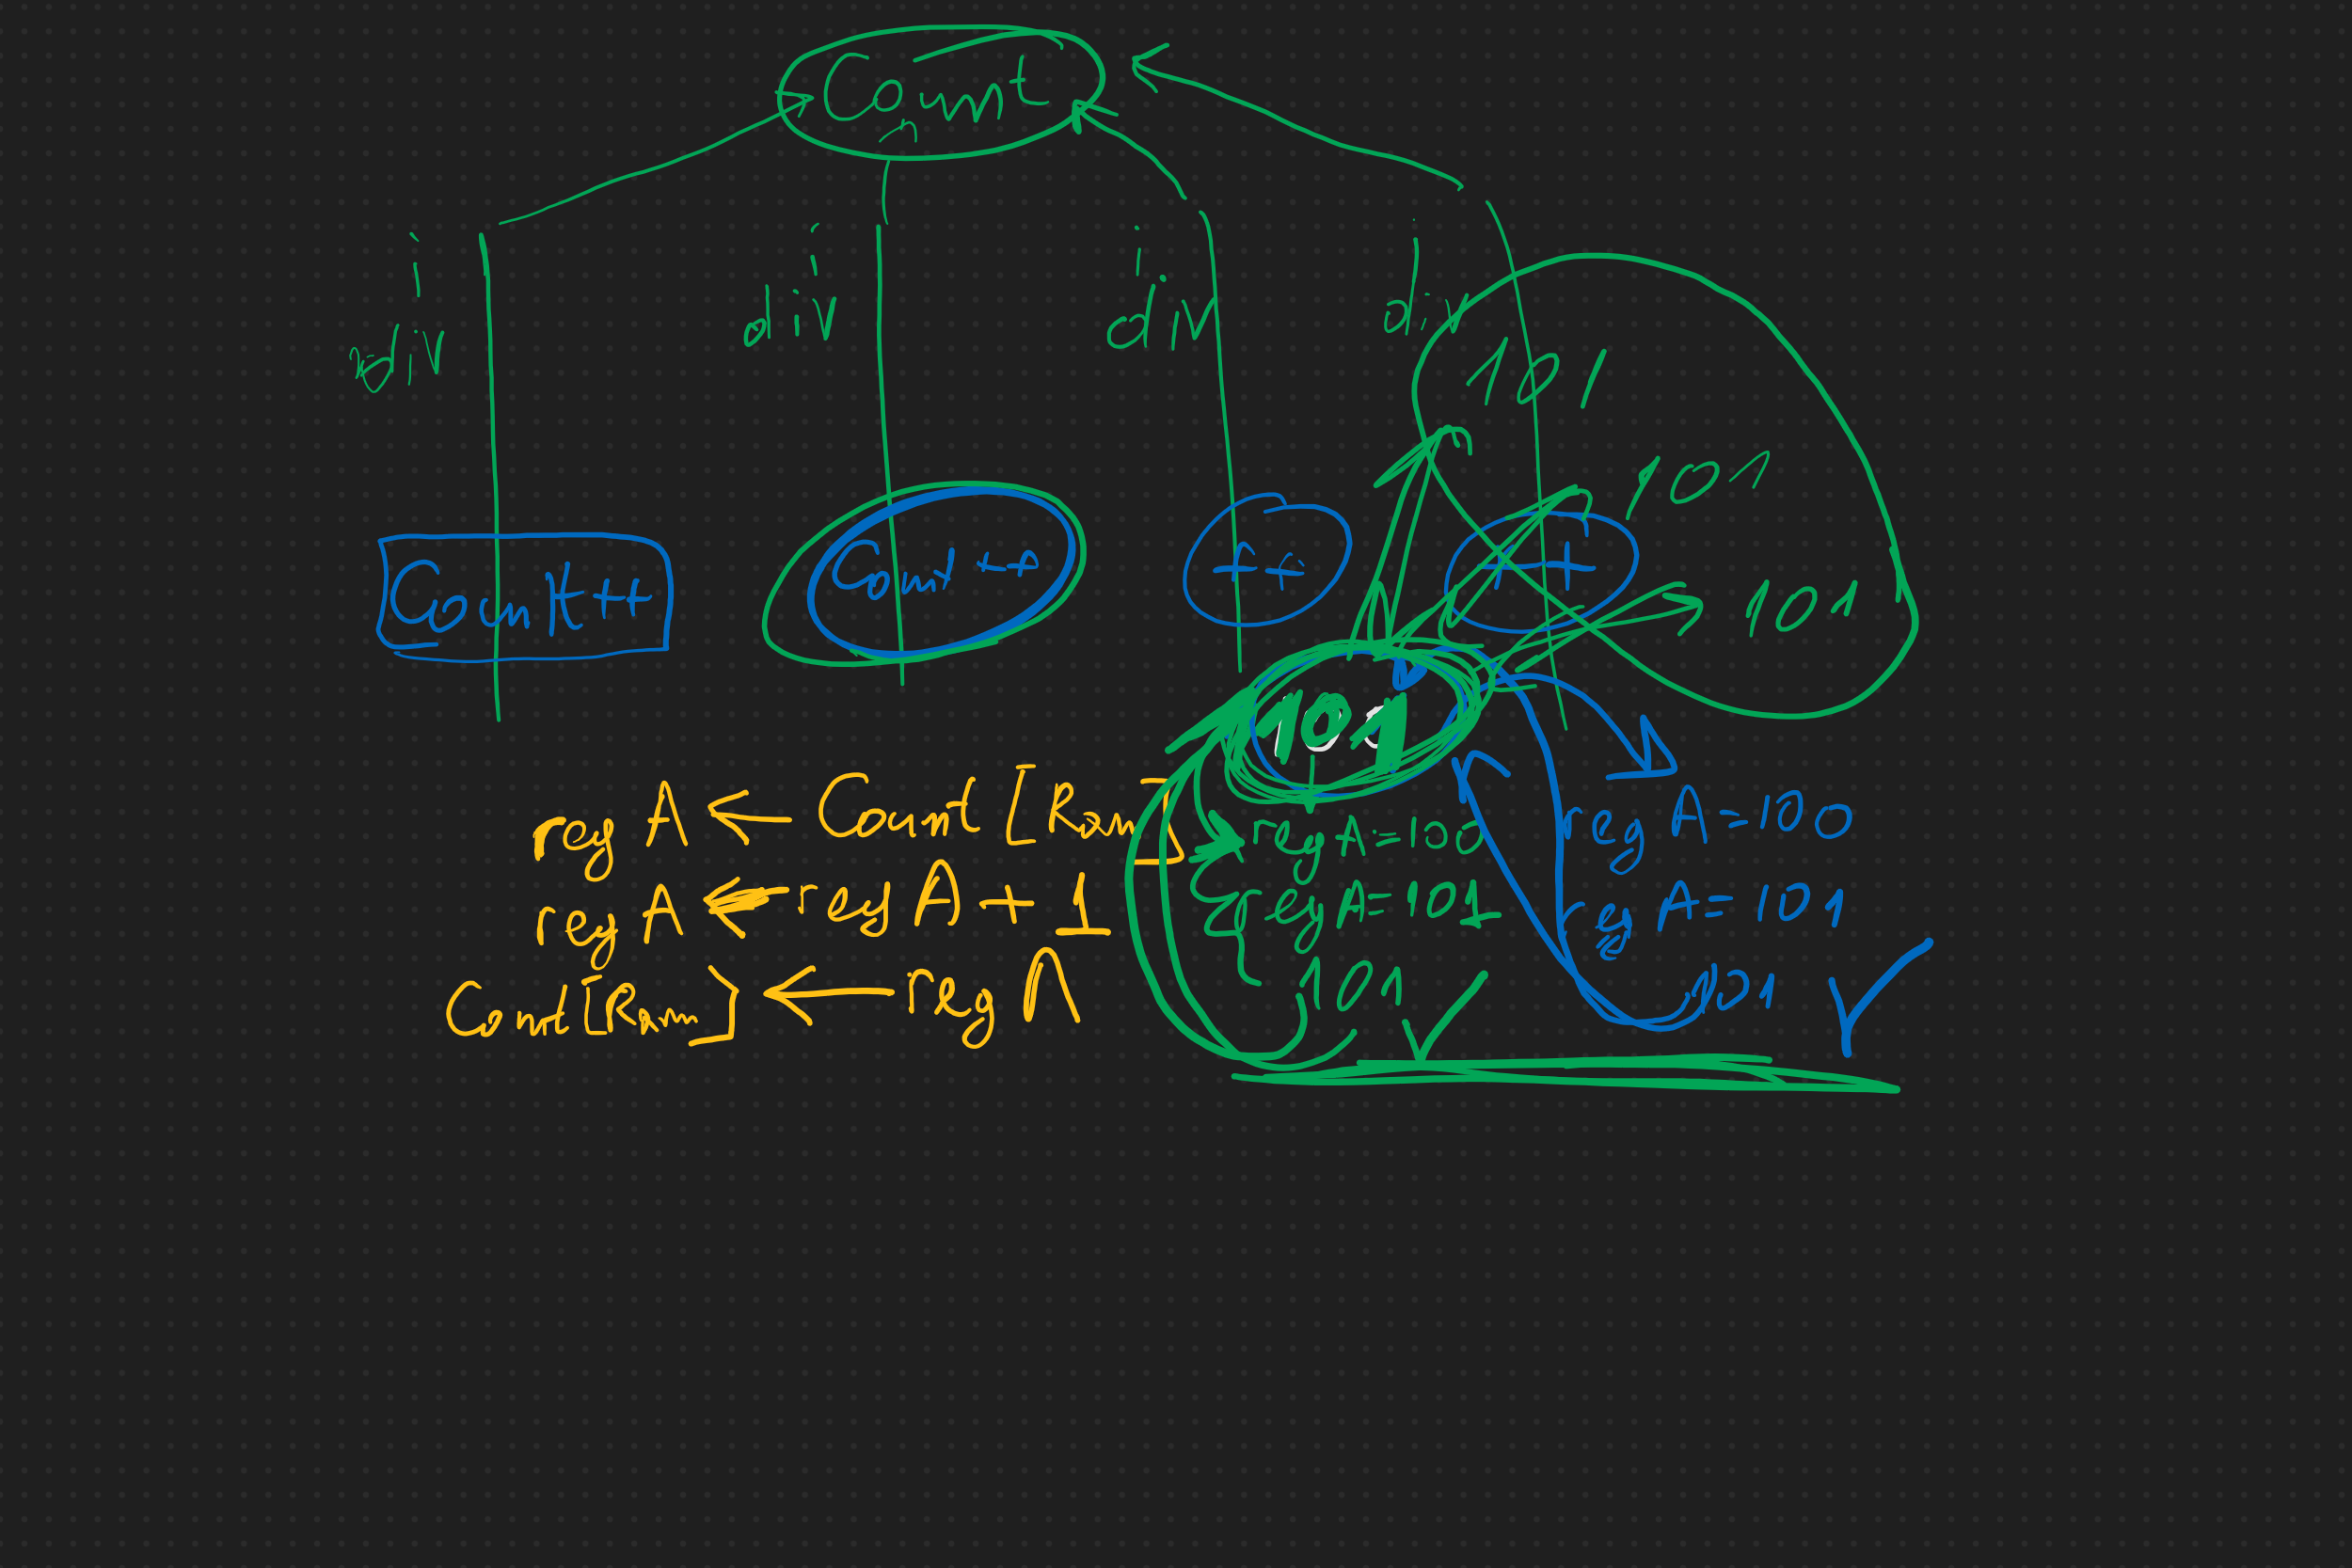 Count
i
i
i
i
div
div
div
div
101
101
Count++
Count++
++
++
101
101
reg A ← Count [Ram]
reg A ← reg A + 1
Count [Ram] ← reg A
reg A = 100
reg A = 101
101
reg A = 100
reg A = 101
101